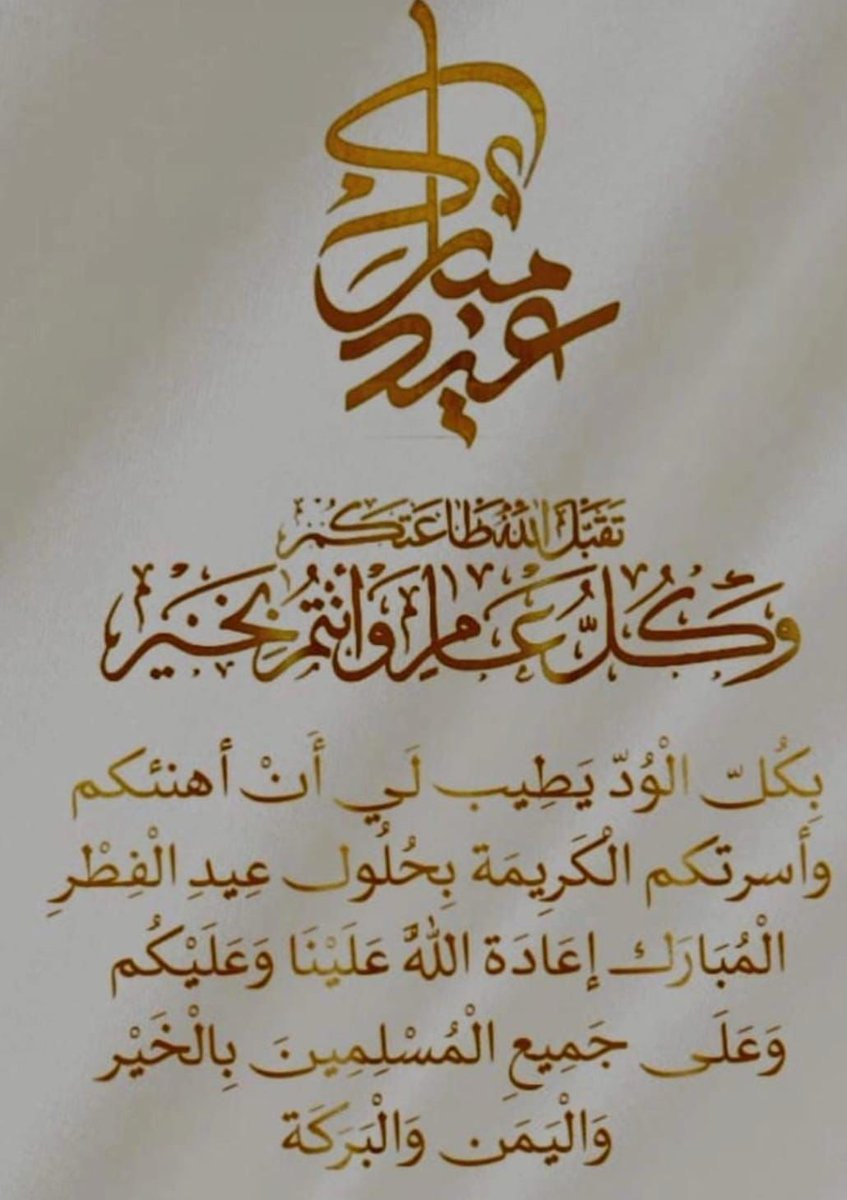 عيد مبارك
تَقَبَّلَ اللهُ طَاعَتَكُمْ
وَكُلُّ عَامٍ وَأَنْتُمْ بِخَيْرٍ
بِكُلّ الْوُدّ يَطِيب لَي أَنْ أهنئكم
وأسرتكم الْكَرِيمَة بِحُلُول عِيدِ الْفِطْرِ
الْمُبَارَك إعَادَة اللهَّ عَلَيْنَا وَعَلَيْكُم
وَعَلَى جَمِيعِ الْمُسْلِمِينَ بِالْخَيْر
وَالْيَمَن وَالْبَرَكَة